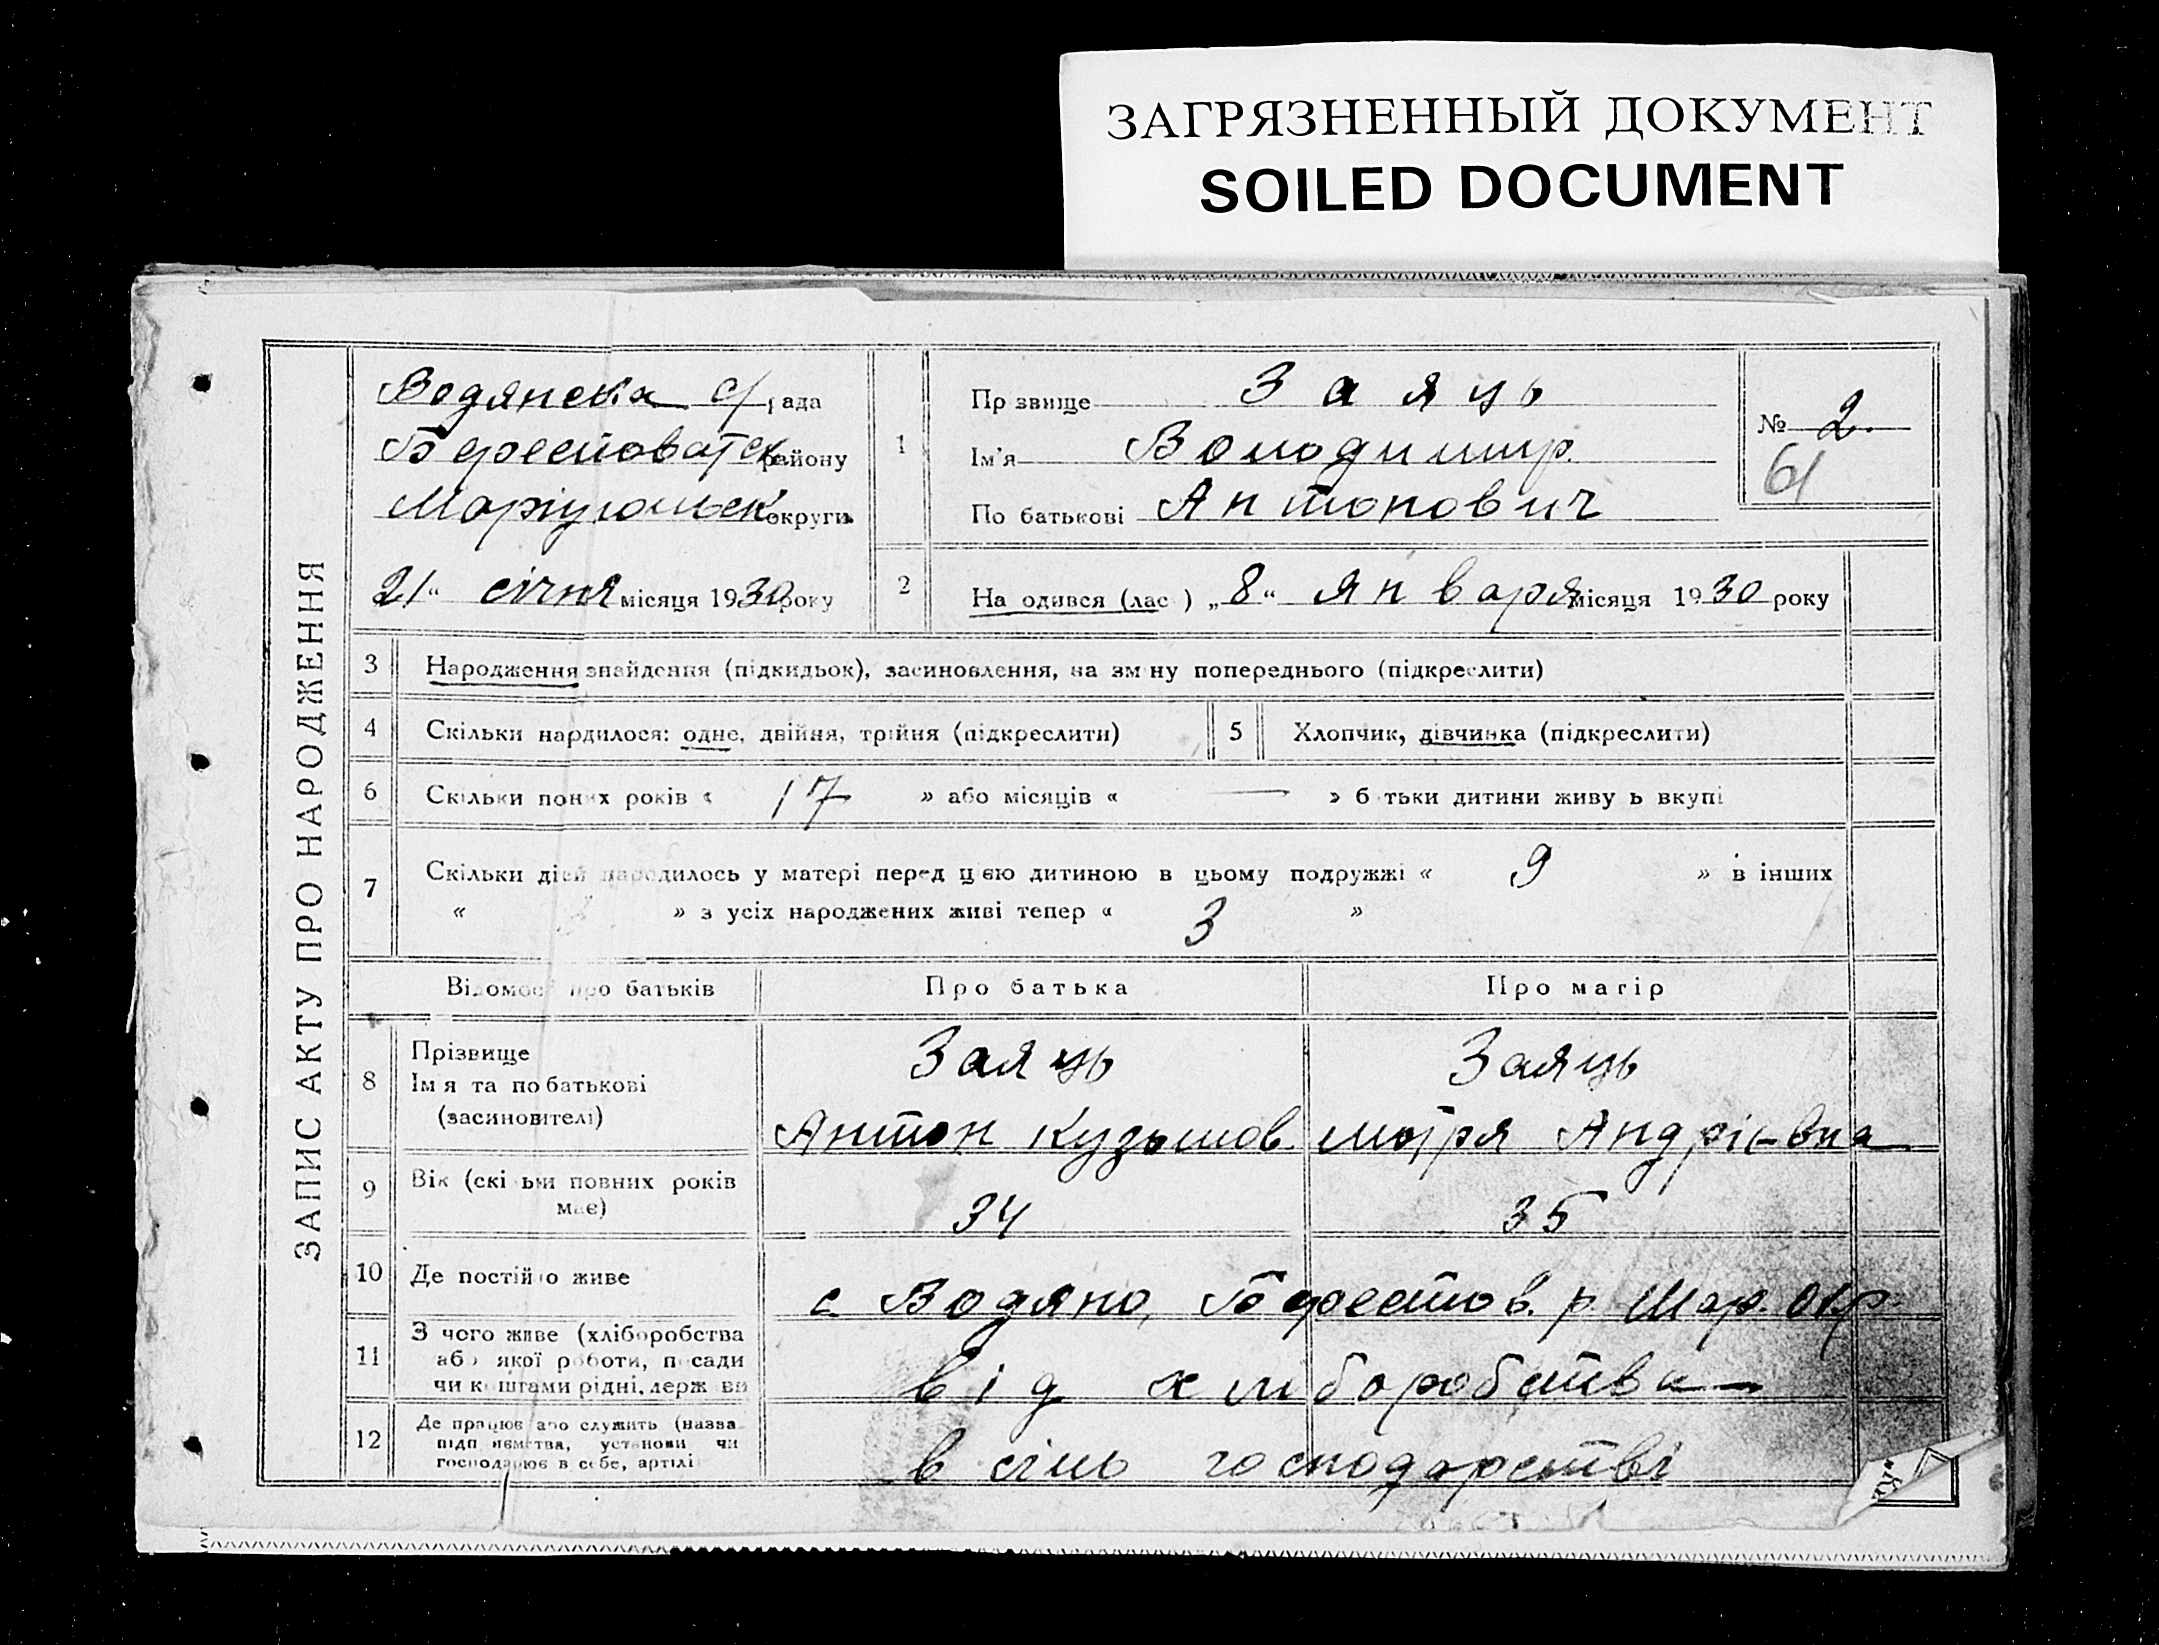 ЗАГРЯЗНЕННЫЙ ДОКУМЕНТ
SOILED DOCUMENT
ЗАПИС АКТУ ПРО НАРОДЖЕННЯ
Водянска с/рада
Берестоватск району
Маріупольск округи
21" січня місяця 1930 року
1
Пр звище Заяць
Ім'я Володимир
По батькові Антонович
№ 2.
61
2
На одився (лас ) „8" января місяця 1930 року
3 Народження знайдення (підкидьок), засиновлення, на зм ну попереднього (підкреслити)
4 Скільки нардилося: одне, двійня, трійня (підкреслити) 5 Хлопчик, дівчинка (підкреслити)
6 Скільки пон х років « 17 » або місяців « — » б тьки дитини живу ь вкупі
7 Скільки дітей народилось у матері перед цією дитиною в цьому подружжі « 9 » в інших
« » з усіх народжених живі тепер « 3 »
Відомос і про батьків Про батька Про матір
8 Прізвище Заяць Заяць
Ім я та по батькові Антон Кузьмов. Марія Андрієвна
(засиновителі)
9 Вік (скі ьки повних років має) 34 35
10 Де постійно живе с Водяно, Берестов. р. Мар. Окр.
11 З чого живе (хліборобства
або якої роботи, посади
чи коштами рідні, держ ви від хліборобства
12 Де працює або служить (назва
підп иємства, установи чи
господарює в себе, артілі в сільс господарстві